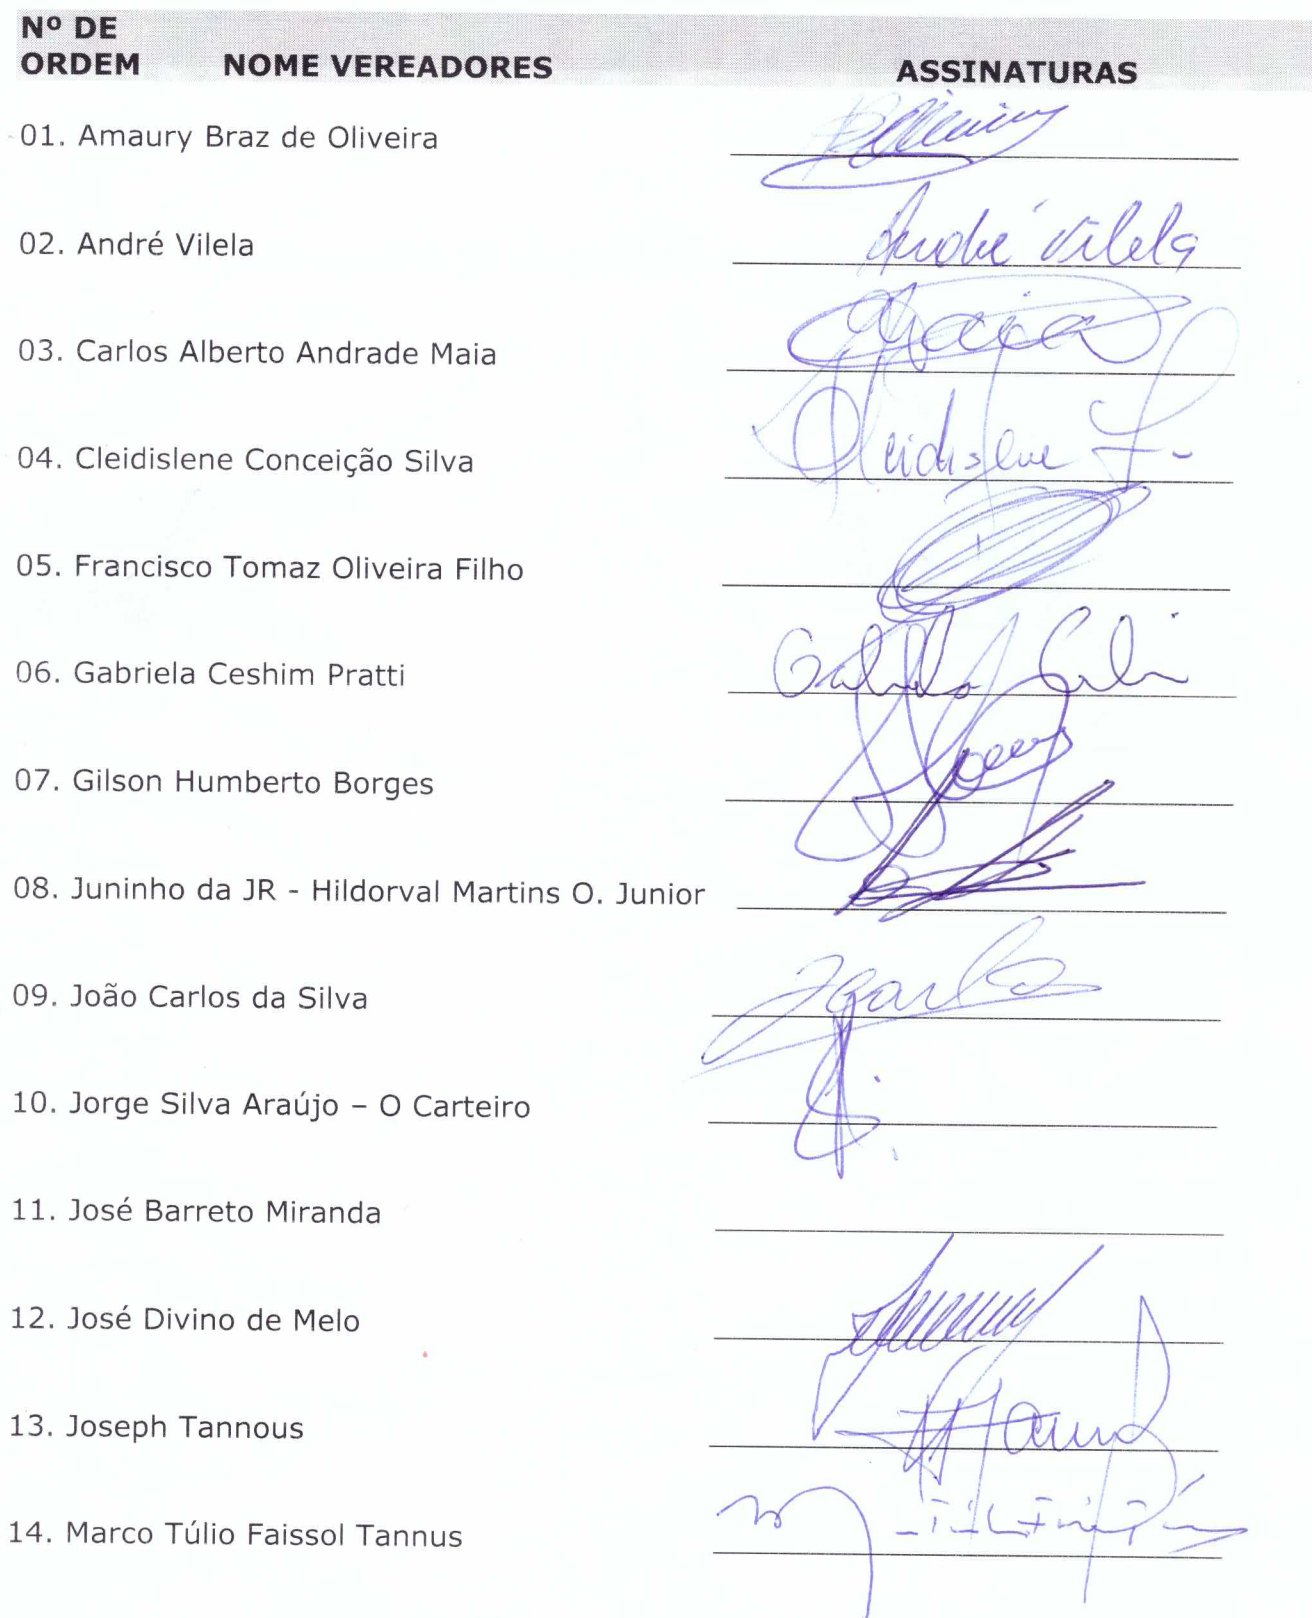 Nº DE
ORDEM NOME VEREADORES ASSINATURAS
01. Amaury Braz de Oliveira
02. André Vilela André Vilela
03. Carlos Alberto Andrade Maia Maia
04. Cleidislene Conceição Silva Cleidislene
05. Francisco Tomaz Oliveira Filho
06. Gabriela Ceshim Pratti
07. Gilson Humberto Borges
08. Juninho da JR - Hildorval Martins O. Junior
09. João Carlos da Silva
10. Jorge Silva Araújo – O Carteiro
11. José Barreto Miranda
12. José Divino de Melo
13. Joseph Tannous
14. Marco Túlio Faissol Tannus